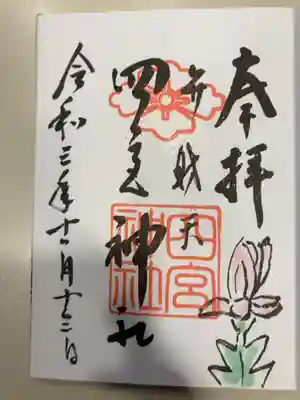 奉拝
弁財天
四宮神社
四宮神社
令和三年十一月十二日